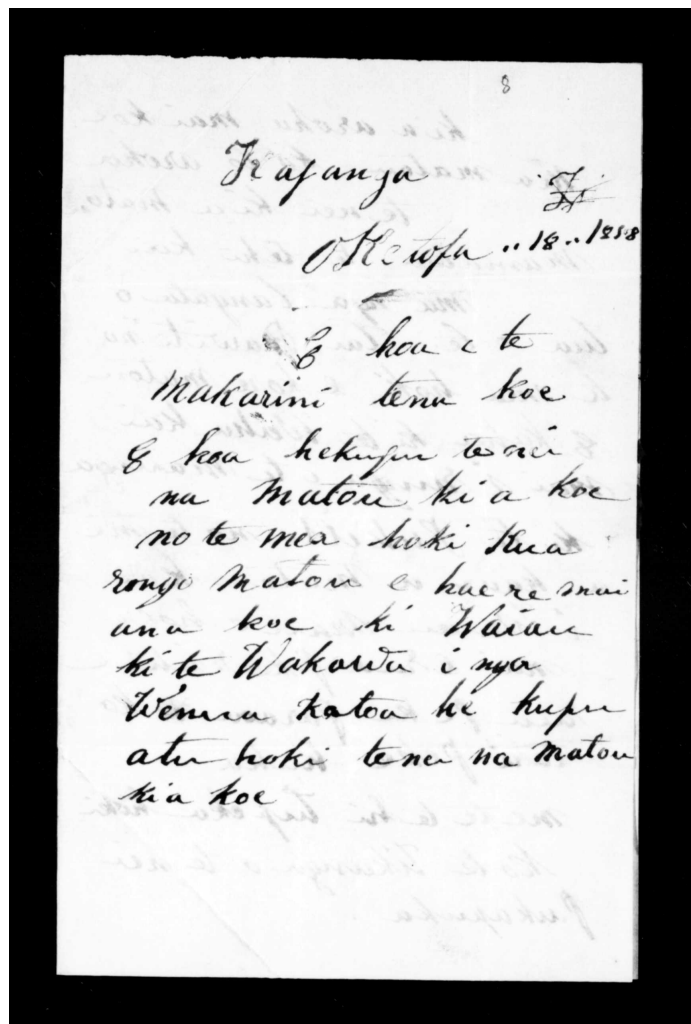 8
Kajanga
Oketopa "18" 1858
E hoa e te
Makarini tena koe
E hoa hekupu tenei
na Matou ki a koe
no te mea hoki Kua
rongo Matou e haere mai
ana koe ki Waiau
ki te Wakawa i nga
Wenua Katoa he kupu
atu hoki tenei na Matou
kia koe